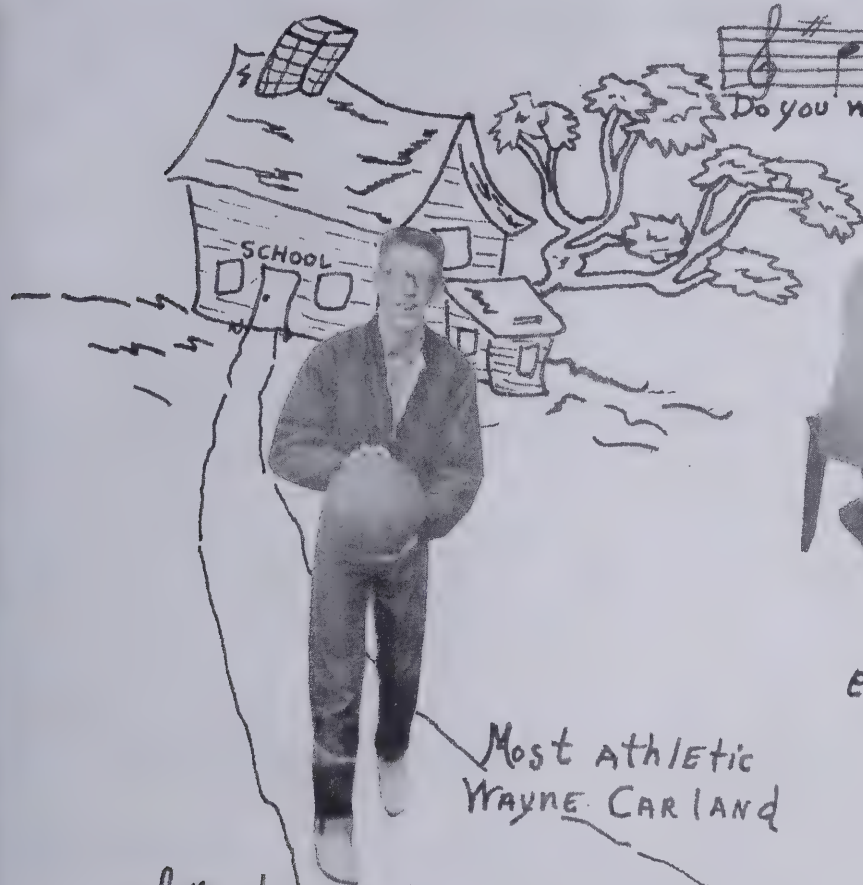 Do you
SCHOOL
Most Athletic
Wayne Carland